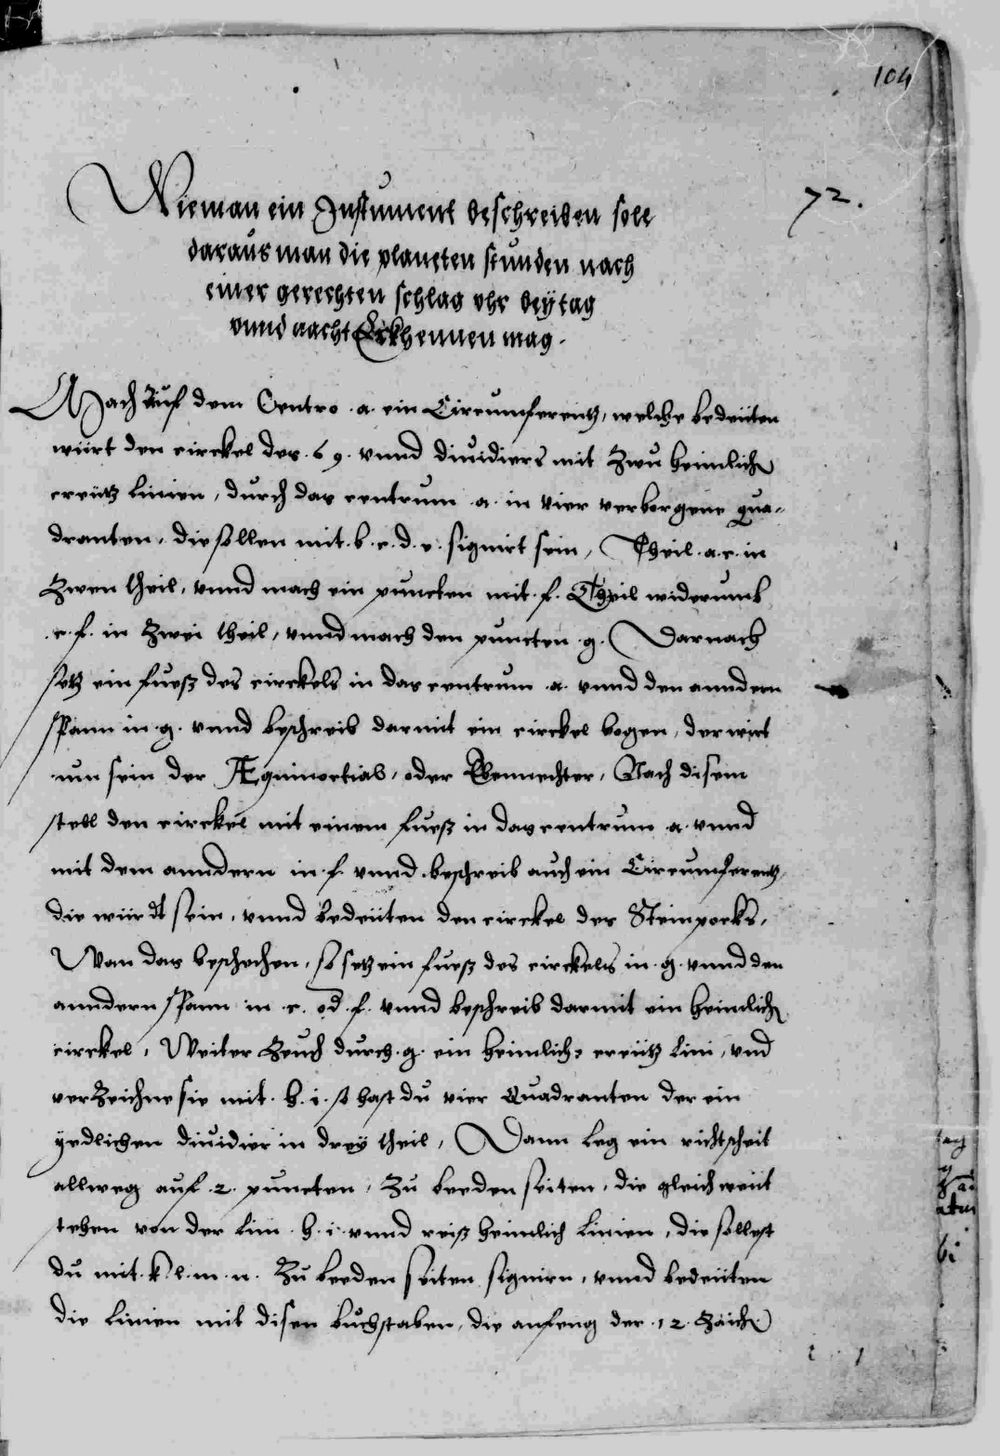 104
72.
Wie man ein Instument beschreiben soll
daraus man die planeten stunden nach
einer gerechten schlag vhr bey tag
vnnd nacht Erkhennen mag.
Mach auf dem Centro .a. ein Circumferentz, welche bedeuten
würt den circkel des .69. vnnd diuidiers mit zwu heimlich
creütz linien, durch das centrum .a. in vier verborgene qua-
dranten, die sollen mit .b. c. d. e. signirt sein, Theil .a.c. in
zwen theil, vnnd mach ein puncten mit .f. Theil widerumb
.c.f. in zwei theil, vnnd mach den puncten .g. Darnach
setz ein fuesz des circkels in das centrum .a. vnnd den anndern
spann in .g. vnnd beschreib darmit ein circkel bogen, der wirt
nun sein der Æquinoctial, oder Ebennechter, Nach disem
stell den circkel mit einem fuesz in das centrum .a. vnnd
mit dem anndern in .f. vnnd beschreib auch ein Circumferentz,
die würdt sein, vnnd bedeuten den circkel des Steinpocks,
Wan das beschechen, so setz ein fuesz des circkels in .g. vnnd den
anndern spann in .c. od .f. vnnd beschreib darmit ein heimlich
circkel, Weiter zeuch durch .g. ein heimlich creütz lini, vnd
verzeichne sie mit .h. i. so hast du vier Quadranten der ein
yedlichen diuidier in drey theil, Dann leg ein richtscheit
allweg auf .2. puncten, zu beeden seiten, die gleich weit
stehen von der lini .h. i. vnnd reisz heimlich linien, die sollest
du mit .k. l. m. n. zu beeden seiten signirn, vnnd bedeuten
die linien mit disen buchstaben, die anfeng der .12. zaich